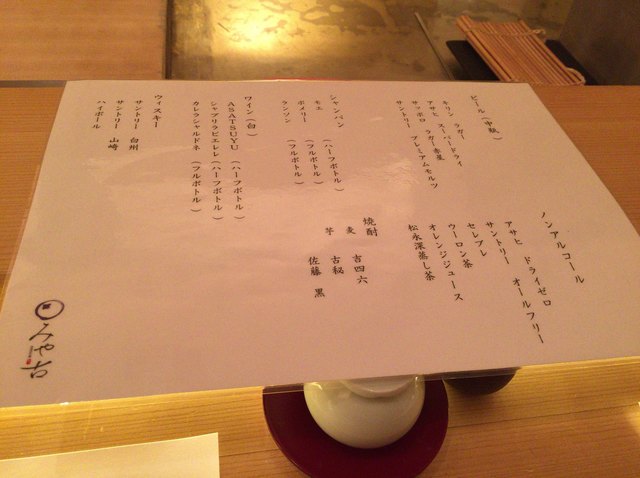 ビール（中瓶）
キリン ラガー
アサヒ スーパードライ
サッポロ ラガー赤星
サントリー プレミアムモルツ
シャンパン
モエ （ハーフボトル）
ポメリー （フルボトル）
ランソン （フルボトル）
ワイン（白）
ASATSUYU （ハーフボトル）
シャブリラピエレレ（ハーフボトル）
カレラシャルドネ （フルボトル）
ウィスキー
サントリー 白州
サントリー 山崎
ハイボール
ノンアルコール
アサヒ ドライゼロ
サントリー オールフリー
セレブレ
ウーロン茶
オレンジジュース
松永深蒸し茶
焼酎
麦 吉四六
芋 古秘
佐藤 黒
みや古